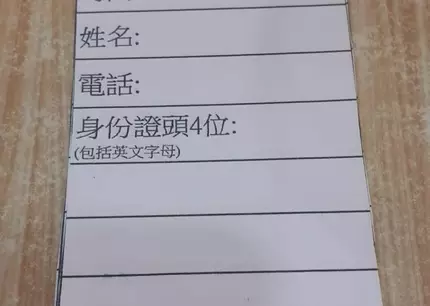 姓名:
電話:
身份證頭4位:
(包括英文字母)